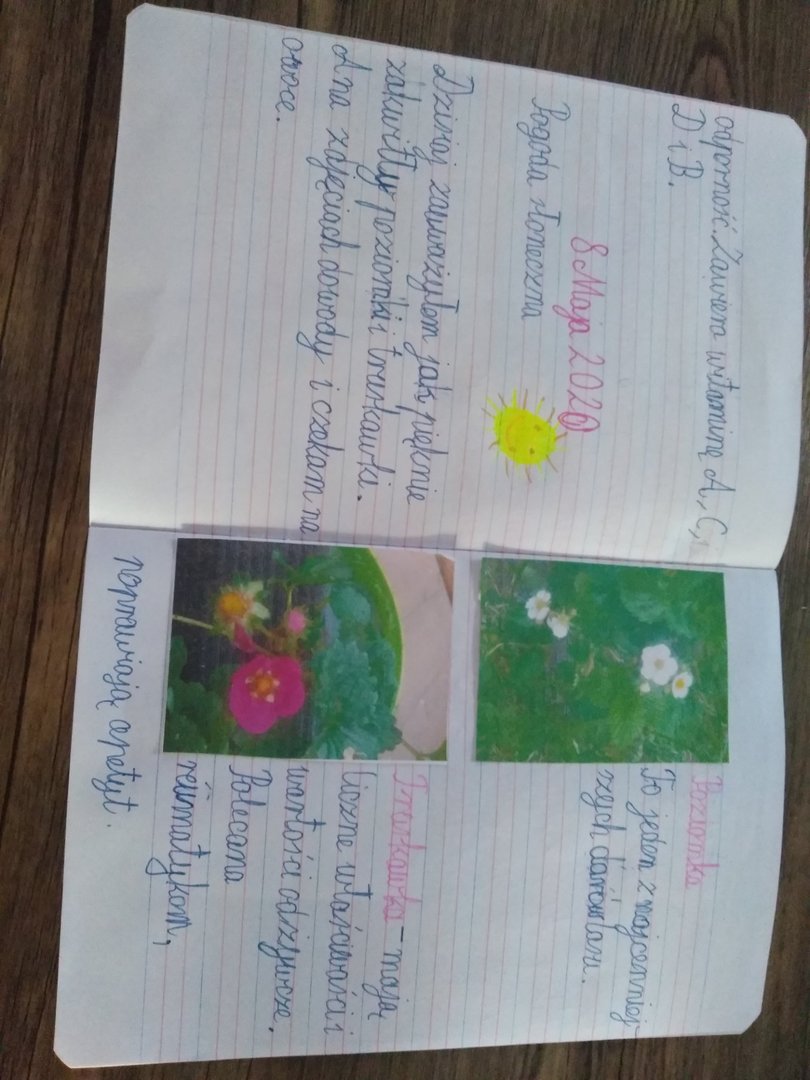 odporność. Zawiera witaminę A, C,
D i B.
8 Maja 2020
Pogoda słoneczna
Dzisiaj zauważyłem jak pięknie
zakwitły poziomki i truskawki.
A na zdjęciach dowody i czekam na
owoce.
Poziomka
To jeden z najcenniej-
szych darów lasu.
Truskawka - mają
liczne właściwości i
wartości odżywcze.
Polecana
reumatykom,
poprawiają apetyt.